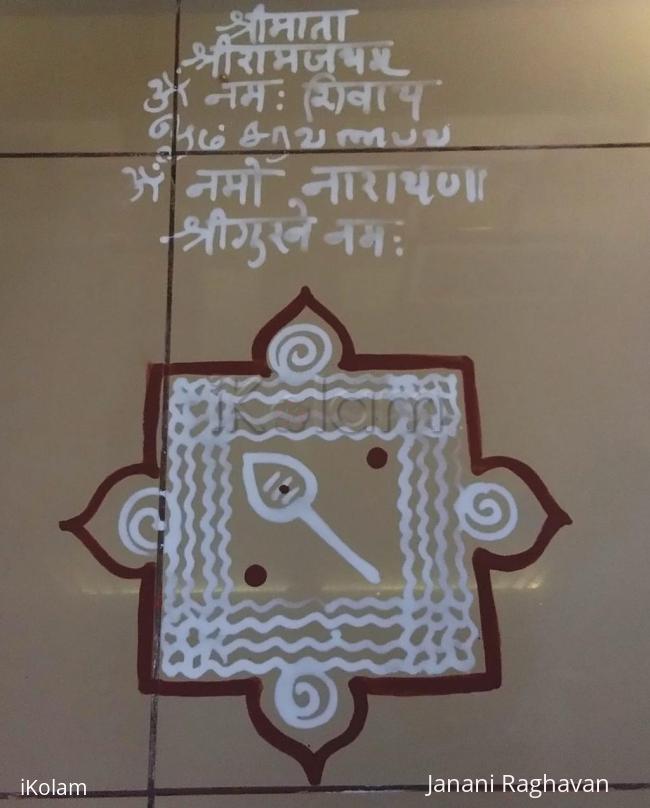 श्रीमाता
श्रीरामजयम्
ॐ नमः शिवाय
ஓம் சரவணபவ
ॐ नमो नारायणा
श्रीगुरवे नमः
iKolam
iKolam
Janani Raghavan